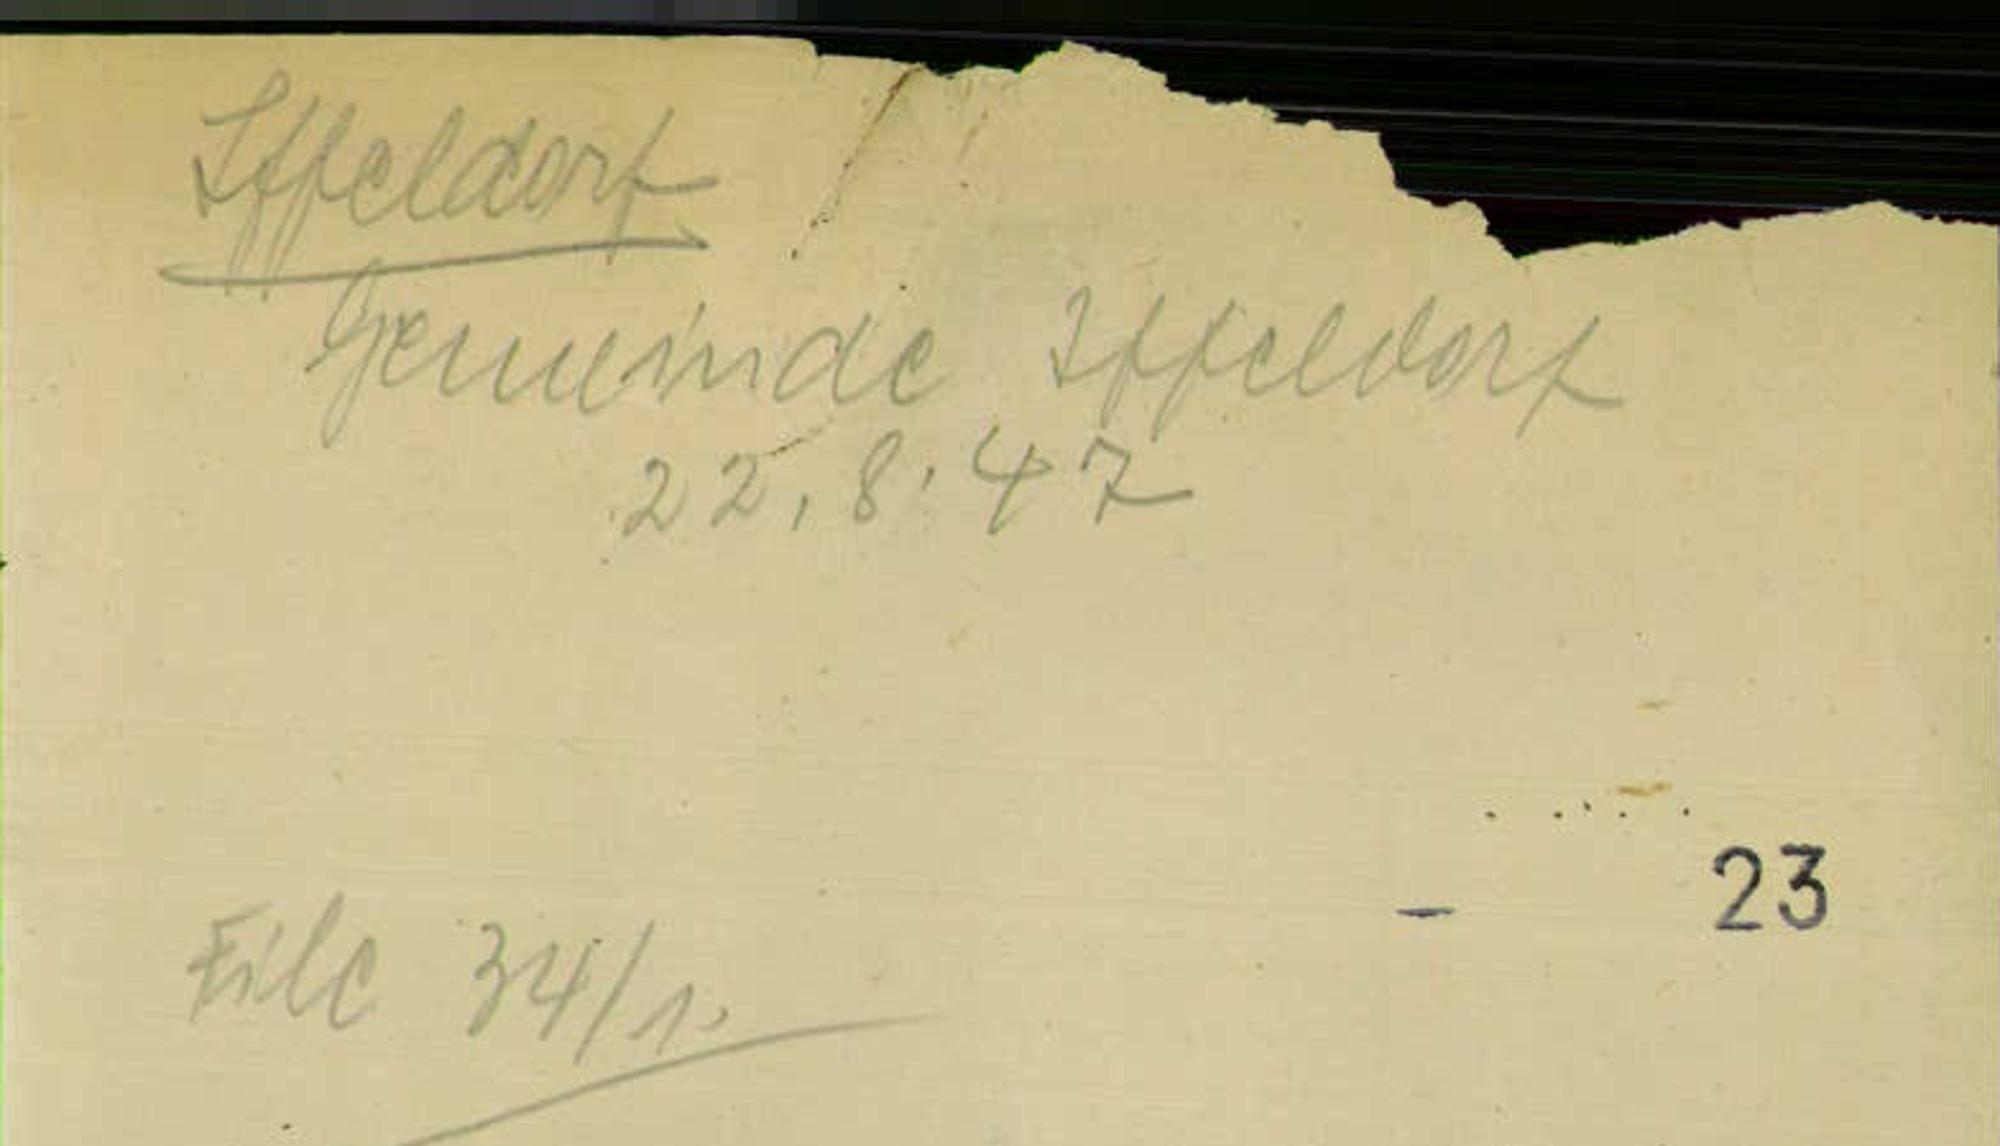 Iffeldorf
Gemeinde Iffeldorf
22.8.47
– 23
File 34/1.